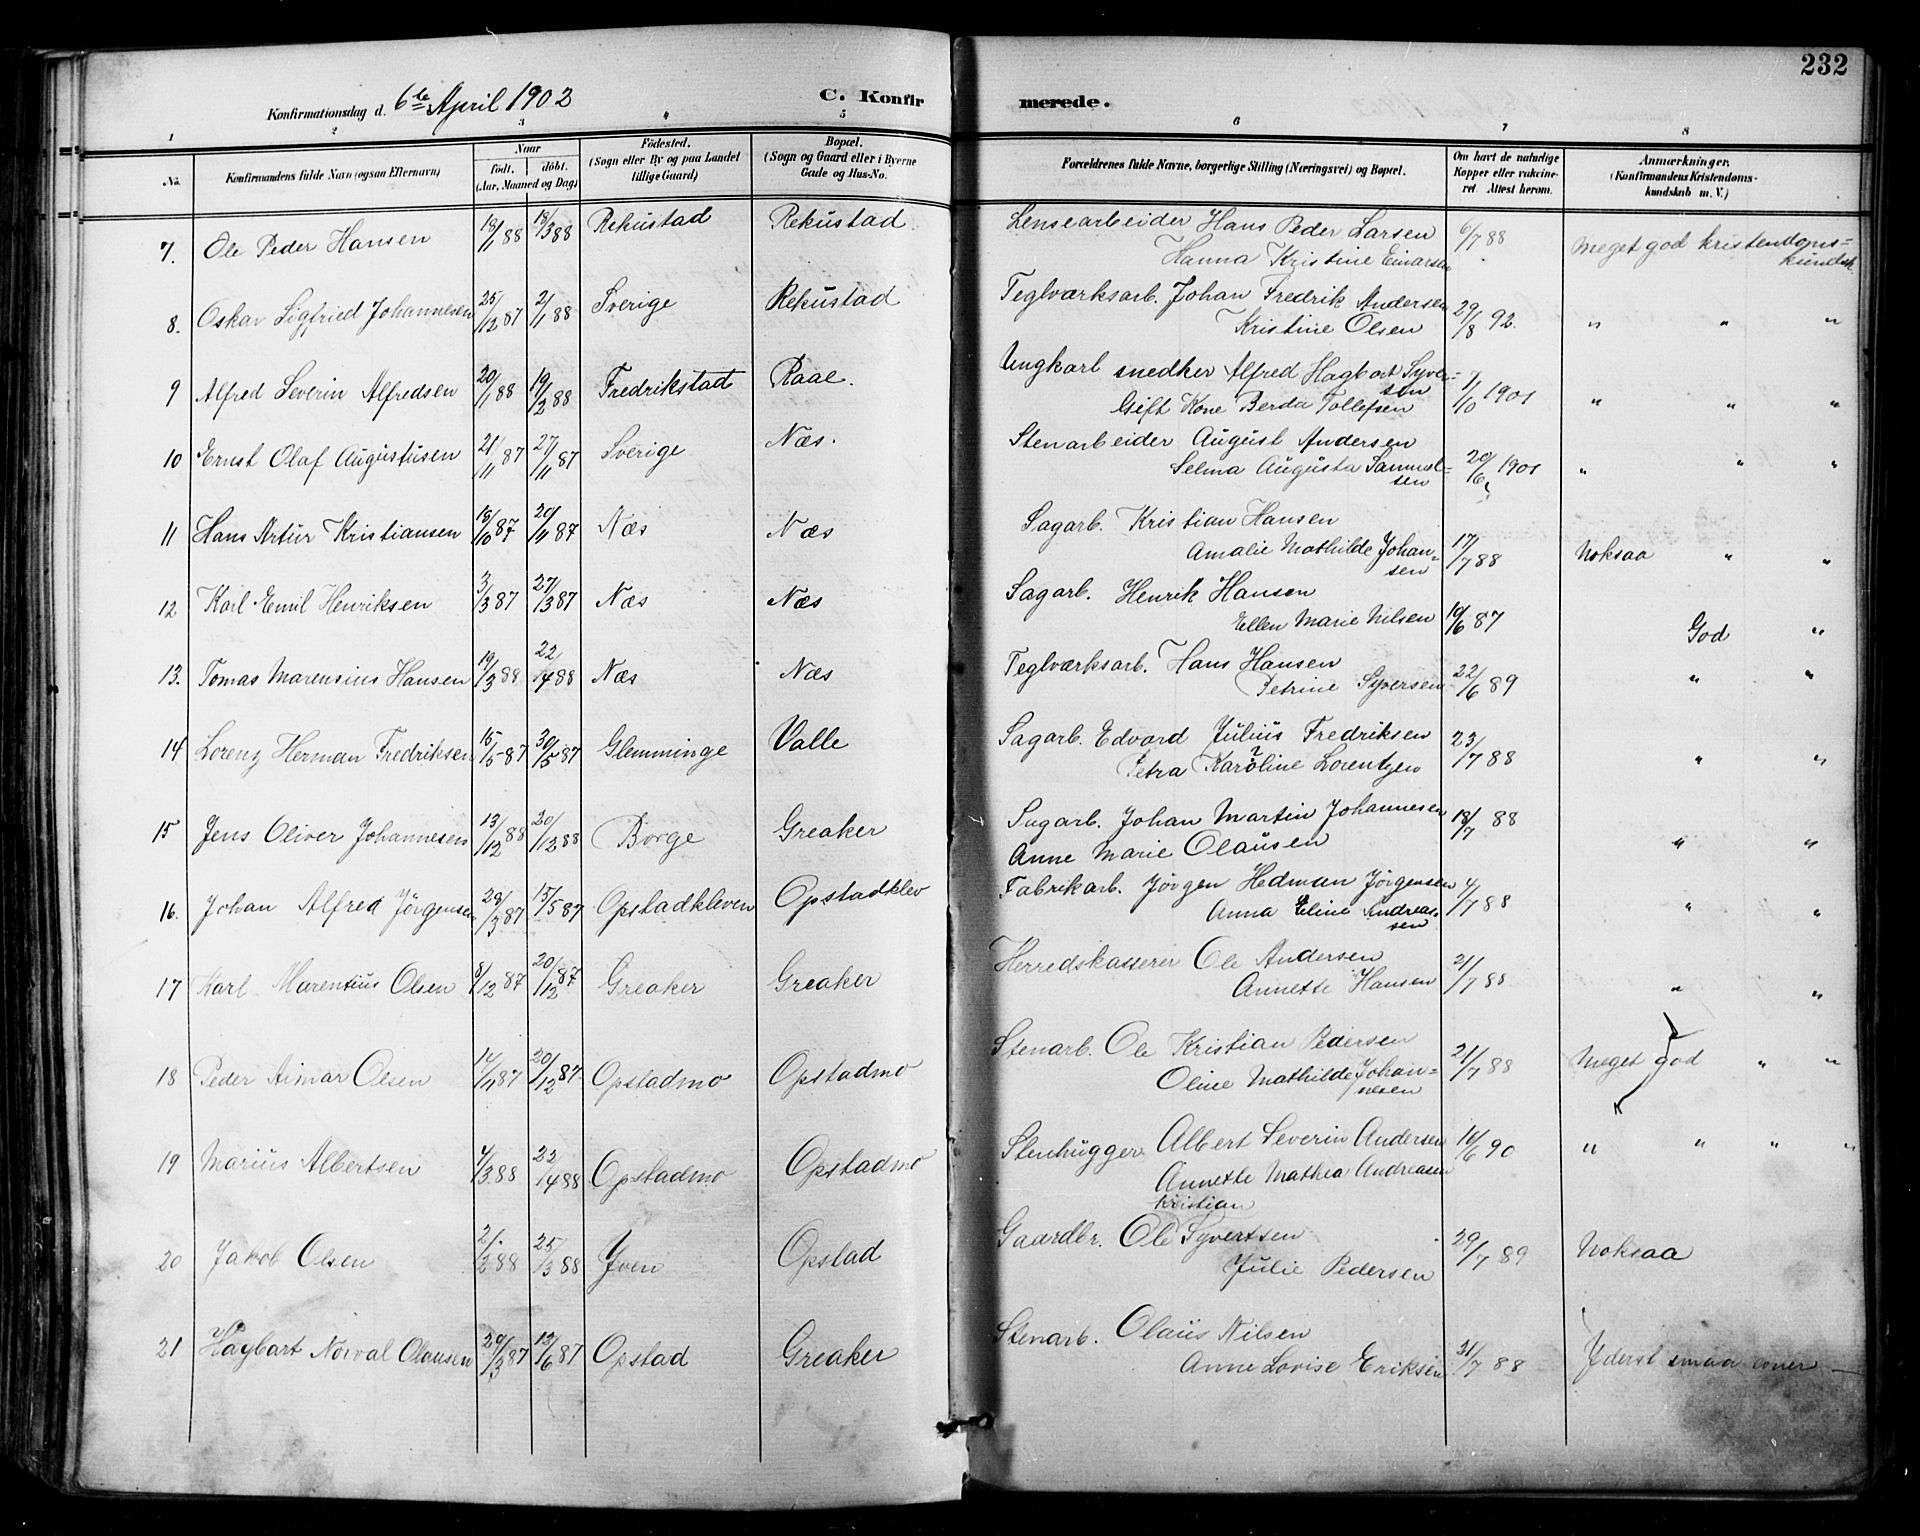 232
Konfirmationsdag d. 6te April 1902
C. Konfirmerede.
1 2 3 4 5 6 7 8
No. Konfirmandens fulde Navn (ogsaa Efternavn) Naar født. døbt. (Aar, Maaned og Dag) Fødested. (Sogn eller By og paa Landet tillige Gaard) Bopæl. (Sogn og Gaard eller i Byerne Gade og Hus-No. Forældrenes fulde Navne, borgerlige Stilling (Næringsvei) og Bopæl. Om havt de naturlige Kopper eller vakcineret. Attest herom. Anmærkninger. (Konfirmandens Kristendomskundskab m. V.)
7. Ole Peder Hansen 18/1 88 18/3 88 Rekustad Rekustad Lensearbeider Hans Peder Larsen 6/7 88 Meget god kristendoms=
Hanna Kristine Einarsen kundsk.
8. Oskar Sigfried Johannesen 25/12 87 2/1 88 Sverige Rekustad Teglværksarb. Johan Fredrik Andersen 29/8 92. " " "
Kristine Olsen
9 Alfred Severin Alfredsen 20/1 88 19/2 88 Fredrikstad Raae. Ungkarl snedker Alfred Hagbart Syver=
sen
Gift Kone Berda Tollefsen 7/10 1901 " " "
10 Ernst Olaf Augustusen 21/11 87 27/11 87 Sverige Næs. Stenarbeider August Andersen
Selma Augusta Samuel= 20/6 1901 " " "
sen
11 Hans Artur Kristiansen 15/10 87 20/11 87 Næs Næs Sagarb. Kristian Hansen
Amalie Mathilde Johan= 17/7 88 Noksaa " "
sen
12 Karl Emil Henriksen 3/3 87 27/3 87 Næs Næs Sagarb. Henrik Hansen
Ellen Marie Nilsen 10/6 87 God "
13. Tomas Marensius Hansen 19/3 88 22/4 88 Næs Næs Teglværksarb. Hans Hansen
Petrine Syversen 22/6 89 " "
14 Lorenz Herman Fredriksen 15/5 87 30/5 87 Glemminge Valle Sagarb. Edvard Julius Fredriksen 23/7 88 " "
Petra Karoline Lorentzen
15 Jens Oliver Johannesen 13/12 88 20/12 88 Borge Greaker Sagarb. Johan Martin Johannesen 18/7 88
Anne Marie Olausen " "
16. Johan Alfred Jørgensen 28/3 87 15/5 87 Opstadkleven Opstadklev Fabrikarb. Jørgen Hedman Jørgensen 4/7 88 " "
Anna Eline Andreas=
sen
17 Karl Marentius Olsen 8/12 87 20/12 87 Greaker Greaker Herredskasserer Ole Andersen
Annette Hansen 21/7 88 " "
18 Peder Aimar Olsen 14/11 87 20/12 87 Opstadmo Opstadmo Stenarb. Ole Kristian Pedersen 21/7 88 Meget god " "
Oline Mathilde Johan=
nesen
19 Marius Albertsen 4/3 88 22/4 88 Opstadmo Opstadmo Stenhugger Albert Severin Andersen 16/6 90 " " " "
Annette Mathea Andreasen
Kristian
20 Jakob Olsen 2/2 88 25/3 88 Yven Opstad Gaardbr. Ole Syvertsen 29/7 89 Noksaa
Julie Pedersen
21 Hagbart Norval Olausen 29/3 87 12/6 87 Opstad Greaker Stenarb. Olaus Nilsen
Anne Lovise Eriksen 31/7 88 Yderst smaa evner